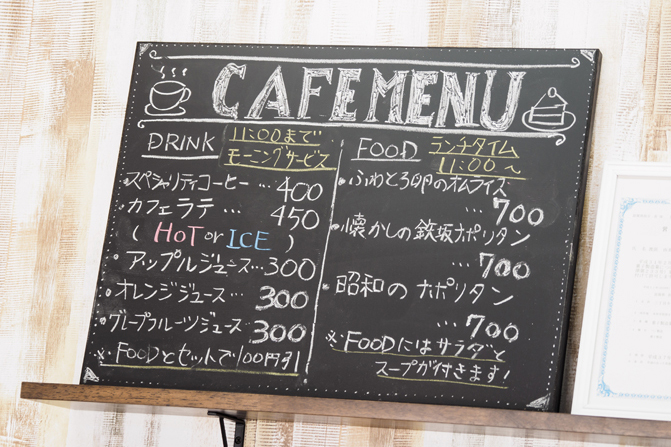 CAFE MENU
DRINK 11:00まで
モーニングサービス
・スペシャリティコーヒー … 400
・カフェラテ … 450
( HOT or ICE )
・アップルジュース … 300
・オレンジジュース … 300
・グレープフルーツジュース 300
※ FOODとセットで100円引
FOOD ランチタイム
11:00～
・ふわとろ卵のオムライス
… 700
・懐かしの鉄板ナポリタン
… 700
・昭和のナポリタン
… 700
※ FOODにはサラダと
スープが付きます!